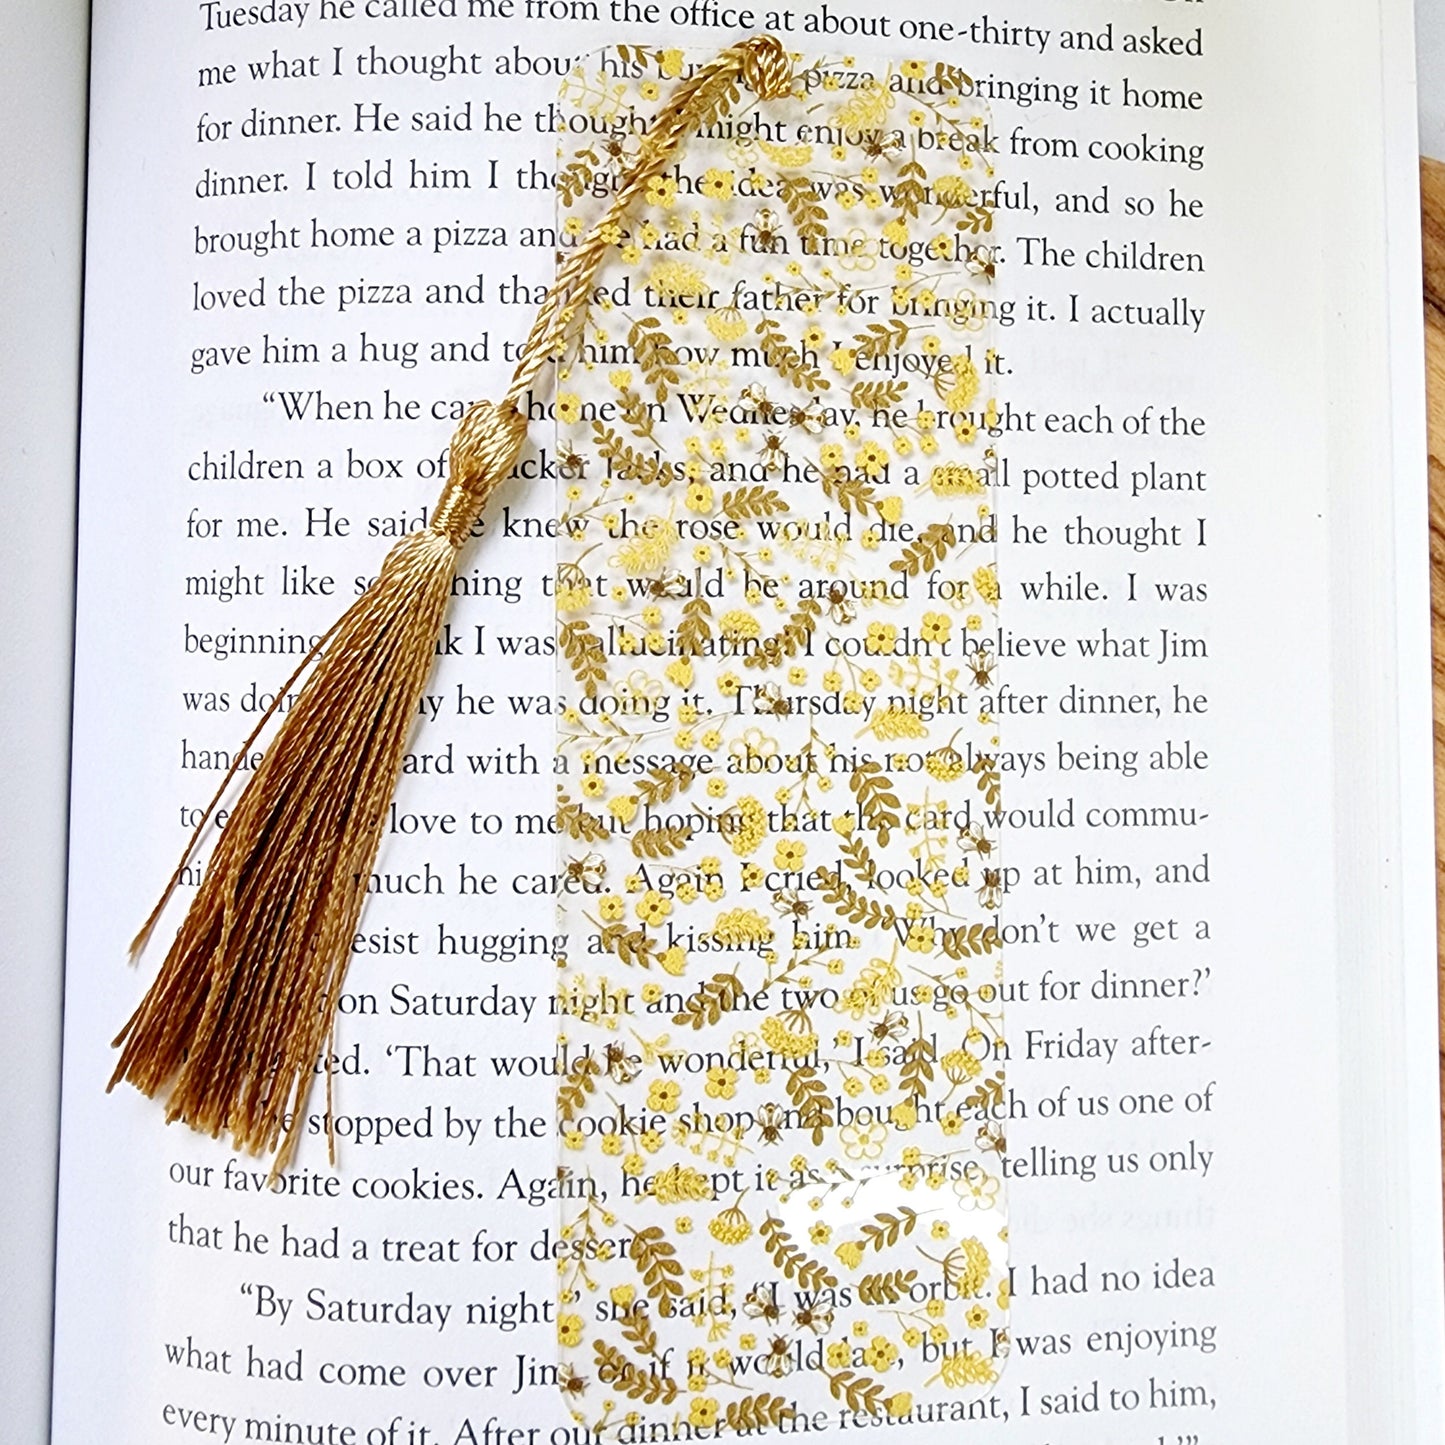 Tuesday he called me from the office at about one-thirty and asked
me what I thought about his buying a pizza and bringing it home
for dinner. He said he thought I might enjoy a break from cooking
dinner. I told him I thought the idea was wonderful, and so he
brought home a pizza and we had a fun time together. The children
loved the pizza and thanked their father for bringing it. I actually
gave him a hug and told him how much I enjoyed it.
“When he came home on Wednesday, he brought each of the
children a box of Cracker Jacks, and he had a small potted plant
for me. He said he knew the rose would die, and he thought I
might like something that would be around for a while. I was
beginning k I was hallucinating! I couldn’t believe what Jim
was doing y he was doing it. Thursday night after dinner, he
handed ard with a message about his not always being able
to e love to me but hoping that the card would commu-
ni much he cared. Again I cried, looked up at him, and
esist hugging and kissing him. ‘Why don’t we get a
on Saturday night and the two of us go out for dinner?’
ted. ‘That would be wonderful,’ I said. On Friday after-
he stopped by the cookie shop and bought each of us one of
our favorite cookies. Again, he kept it as a surprise, telling us only
that he had a treat for dessert.
“By Saturday night,” she said, “I was in orbit. I had no idea
what had come over Jim, or if it would last, but I was enjoying
every minute of it. After our dinner at the restaurant, I said to him,